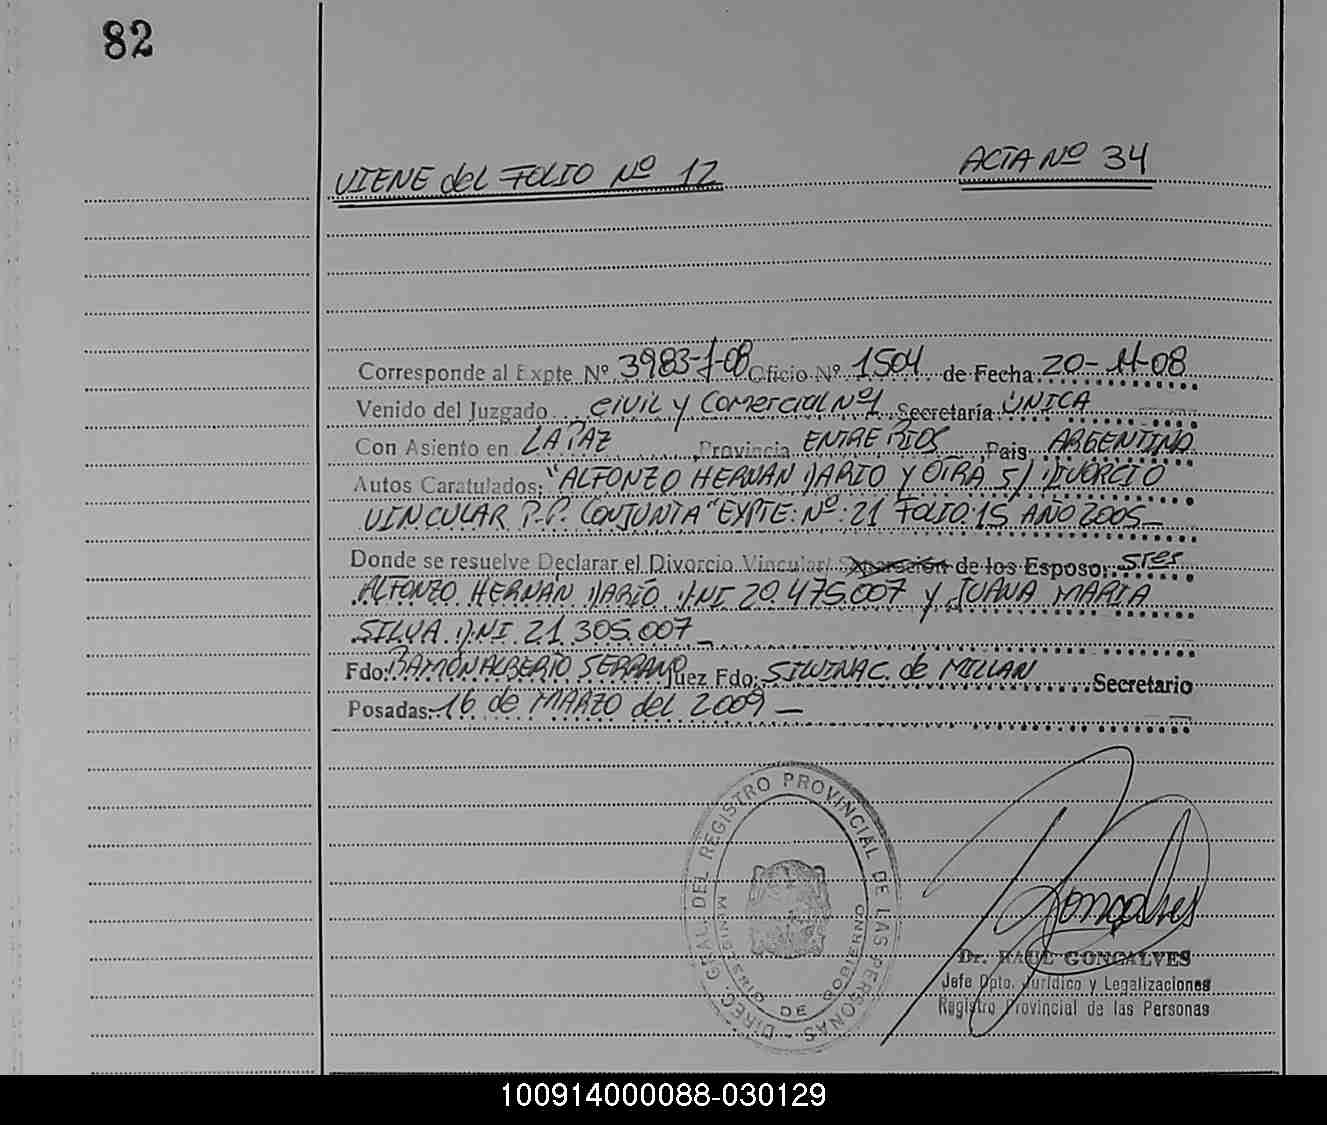 82
VIENE del FOLIO Nº 12 ACTA Nº 34
Corresponde al Expte Nº 3983-J-08 Oficio Nº 1504 de Fecha 20-11-08
Venido del Juzgado CIVIL y COMERCIAL Nº1 Secretaría ÚNICA
Con Asiento en LA PAZ, Provincia ENTRE RIOS, Pais ARGENTINO
Autos Caratulados: "ALFONZO HERNAN DARIO Y OTRA S/ DIVORCIO
VINCULAR P.P. CONJUNTA" EXPTE: Nº: 21 FOLIO: 15 AÑO 2005_
Donde se resuelve Declarar el Divorcio Vincular/ Separación de los Esposo: Sres
ALFONZO HERNAN DARIO DNI 20.475.007 y JUANA MARIA
SILVA DNI 21.305.007_
Fdo: RAMÓN ALBERTO SERRANO Juez Fdo: SILVINA C. de MILLAN Secretario
Posadas: 16 de MARZO del 2009 _
DIREC. GRAL. DEL REGISTRO PROVINCIAL DE LAS PERSONAS -
MINISTERIO DE GOBIERNO
Goncalves
Dr. RAUL GONCALVES
Jefe Dpto. Jurídico y Legalizaciones
Registro Provincial de las Personas
100914000088-030129